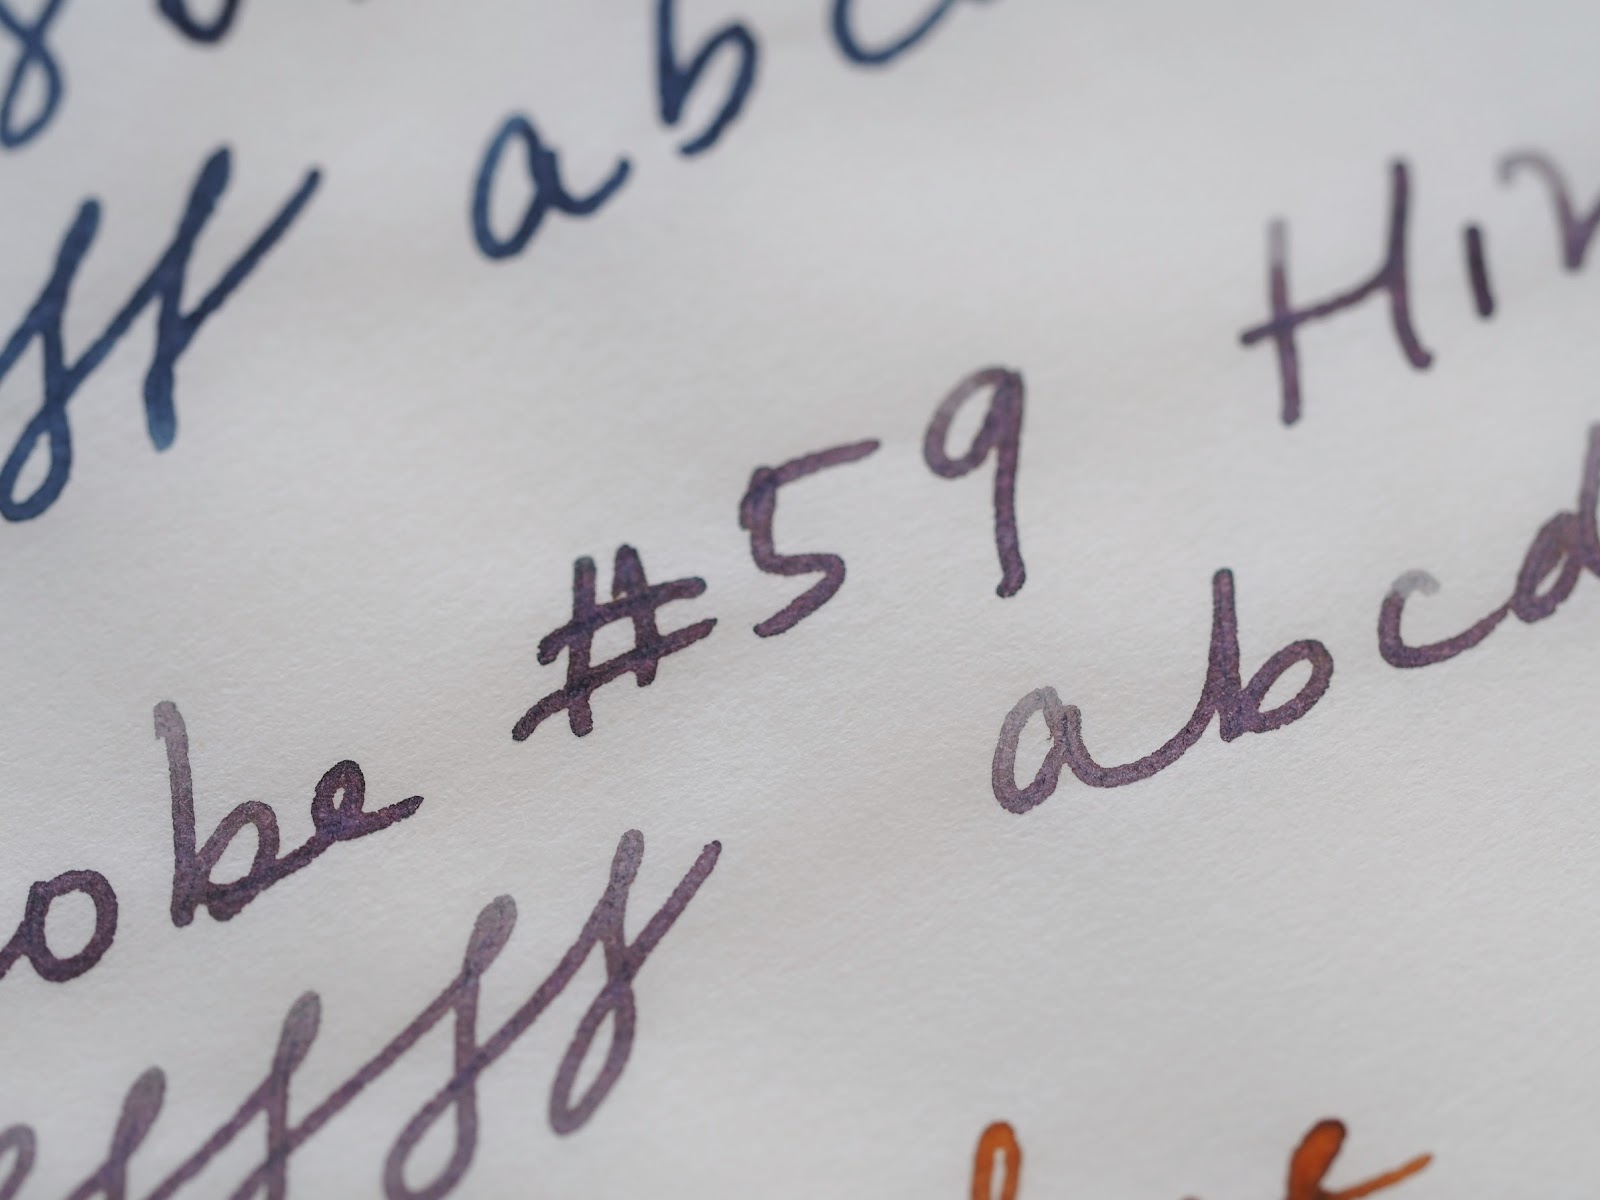 ff a b c
obe #59 Hin
ffff abcd